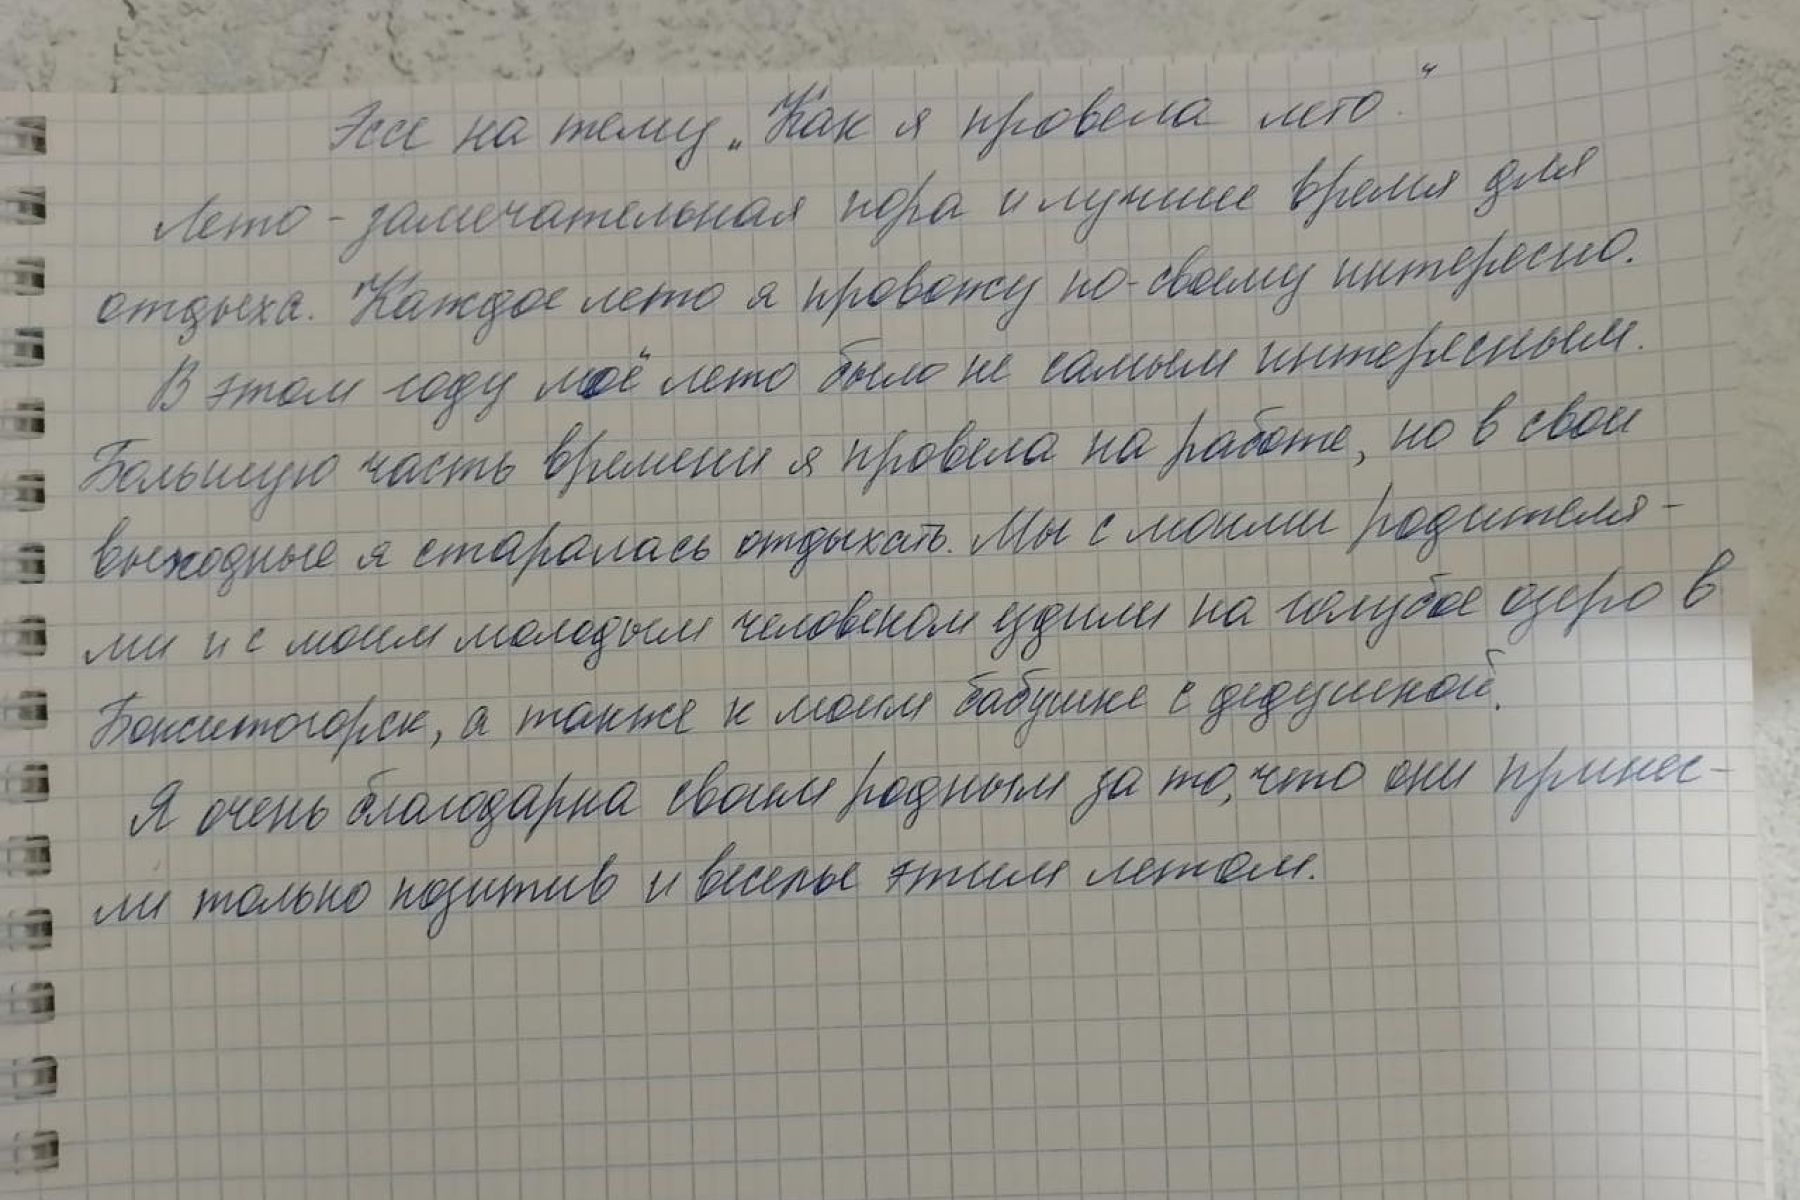 Эссе на тему „Как я провела лето."
Лето - замечательная пора и лучшее время для
отдыха. Каждое лето я провожу по-своему интересно.
В этом году моё лето было не самым интересным.
Большую часть времени я провела на работе, но в свои
выходные я старалась отдыхать. Мы с моими родителя-
ми и с моим молодым человеком ездили на голубое озеро в
Бокситогорск, а также к моим бабушке с дедушкой.
Я очень благодарна своим родным за то, что они принес-
ли только позитив и веселье этим летом.